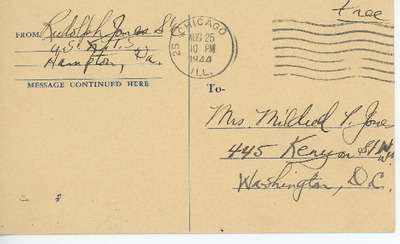 Free
FROM Rudolph Jones S 1/c
U.S. N.T.S.
Hampton, Va.
MESSAGE CONTINUED HERE
CHICAGO
25
AUG 25
10 PM
1944
ILL.
To-
Mrs. Mildred P. Jone
445 Kenyon St. N.W.
Washington, D.C.